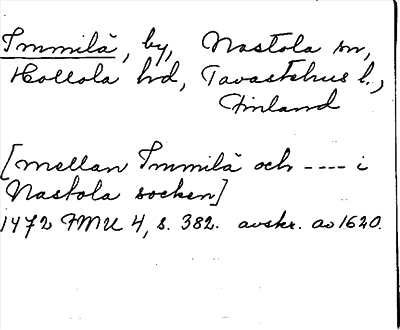 Immilä, by, Nastola sn,
Hollola hd, Tavastehus l.,
Finland
[mellan Immilä och ---- i
Nastola socken]
1472 FMU 4, s. 382. avskr. av 1620.